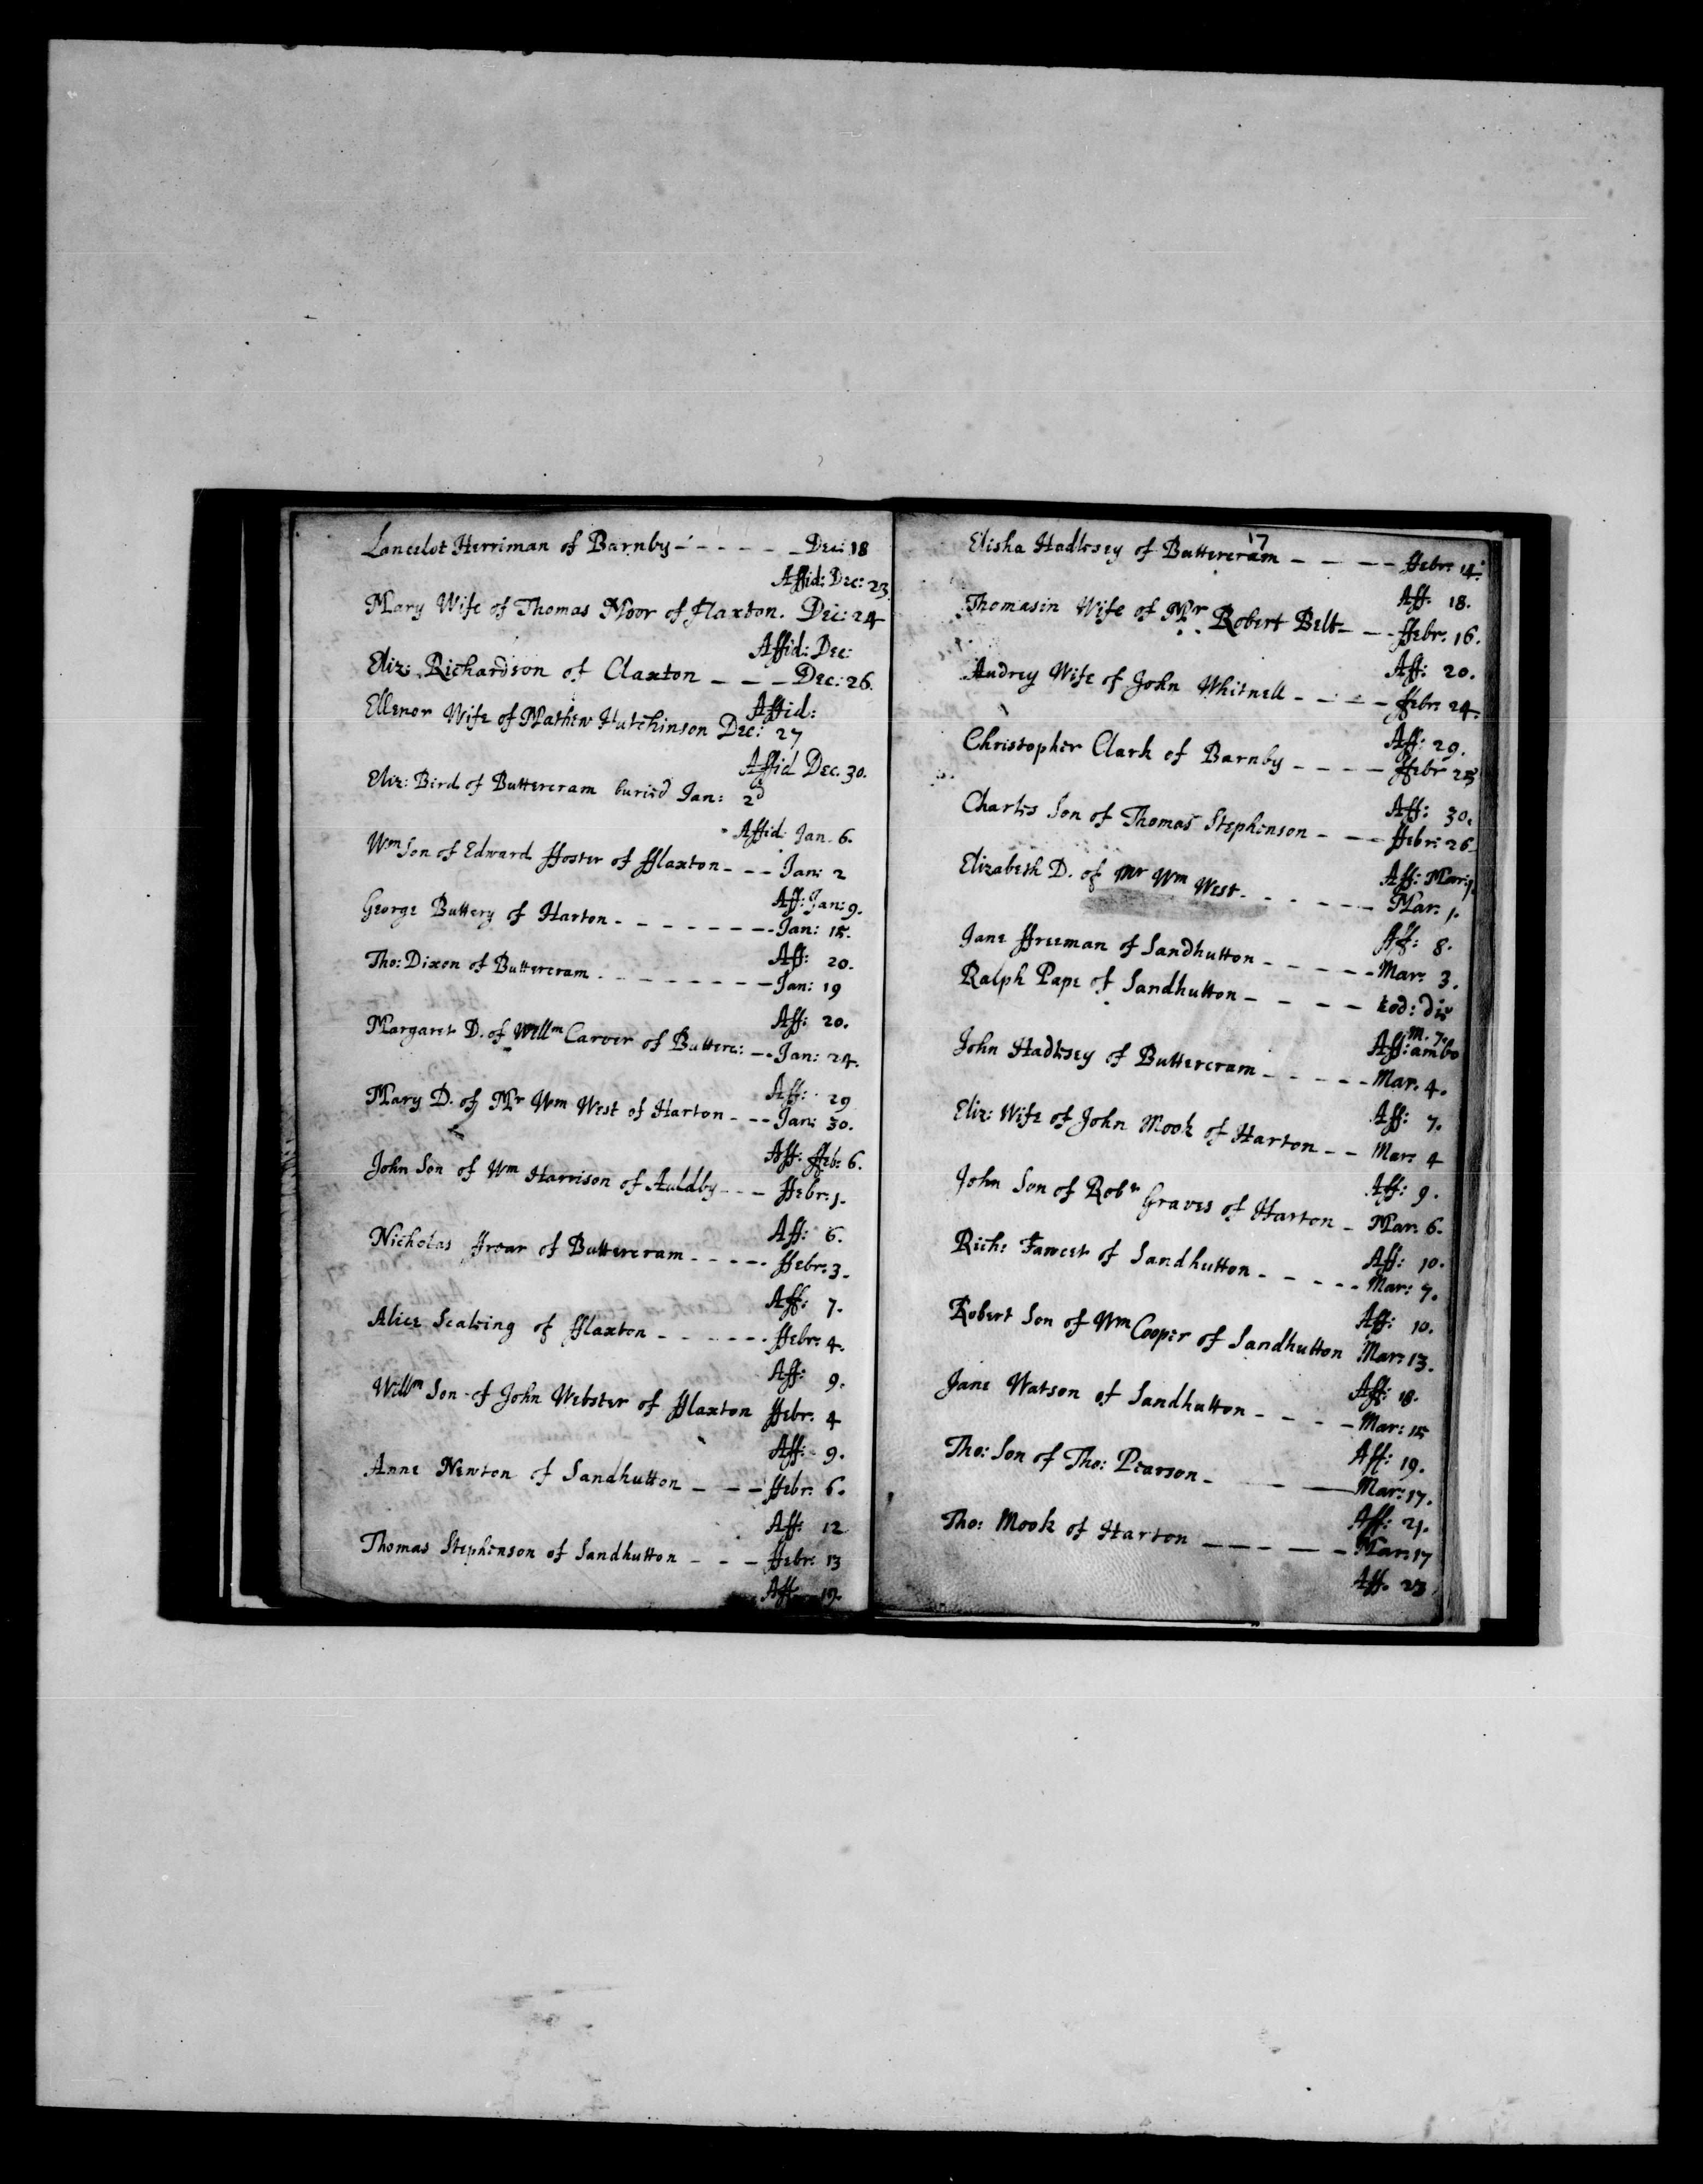 Lancelot Herriman of Barnby - - - - - - Dec: 18
Affid: Dec: 23
Mary Wife of Thomas Moor of Flaxton. Dec: 24
Affid: Dec:
Eliz: Richardson of Claxton - - - Dec: 26.
Affid:
Ellenor Wife of Mathew Hutchinson Dec: 27
Affid Dec. 30.
Eliz: Bird of Buttercram buried Jan: 2d
Affid: Jan. 6.
Wm Son of Edward ffoster of fflaxton - - - Jan: 2
Aff: Jan: 9.
George Buttery of Harton - - - - - - - - Jan: 15.
Aff: 20.
Tho: Dixon of Buttercram - - - - - - - - Jan: 19
Aff: 20.
Margaret D. of Willm Carver of Butterc: - - Jan: 24.
Aff: 29
Mary D. of Mr Wm West of Harton - - - Jan: 30.
Aff: ffeb: 6.
John Son of Wm Harrison of Auldby - - - ffebr: 1.
Aff: 6.
Nicholas ffroar of Buttercram - - - - - ffebr: 3.
Aff: 7.
Alice Sealsing of fflaxton - - - - - - - ffebr: 4.
Aff: 9.
Willm Son of John Webster of fflaxton ffebr: 4
Aff: 9.
Anne Newton of Sandhutton - - - ffebr: 6.
Aff: 12
Thomas Stephenson of Sandhutton - - - ffebr: 13
Aff. 19.
17
Elisha Hadlesey of Buttercram - - - - ffebr: 14.
Aff. 18.
Thomasin Wife of Mr Robert Belt - - - ffebr. 16.
Aff: 20.
Audrey Wife of John Whitnell - - - - ffebr: 24.
Aff: 29.
Christopher Clark of Barnby - - - - ffebr 25
Aff: 30.
Charles Son of Thomas Stephenson - - - ffebr: 26
Aff: Mar: 1
Elizabeth D. of Mr Wm West - - - - - - Mar. 1.
Aff: 8.
Jane ffreeman of Sandhutton - - - - - Mar: 3.
Ralph Pape of Sandhutton - - - - Eod: die
M. 7.
Aff: ambo
John Hadlesey of Buttercram - - - - - Mar. 4.
Aff: 7.
Eliz: Wife of John Mook of Harton - - Mar: 4
Aff: 9.
John Son of Robt Graves of Harton - Mar. 6.
Aff: 10.
Rich: Fawcet of Sandhutton - - - - - Mar: 7.
Aff: 10.
Robert Son of Wm Cooper of Sandhutton Mar: 13.
Aff: 18.
Jane Watson of Sandhutton - - - - Mar: 15
Aff: 19.
Tho: Son of Tho: Pearson - - - Mar: 17.
Aff: 21.
Tho: Mook of Harton - - - - - Mar: 17
Aff. 23